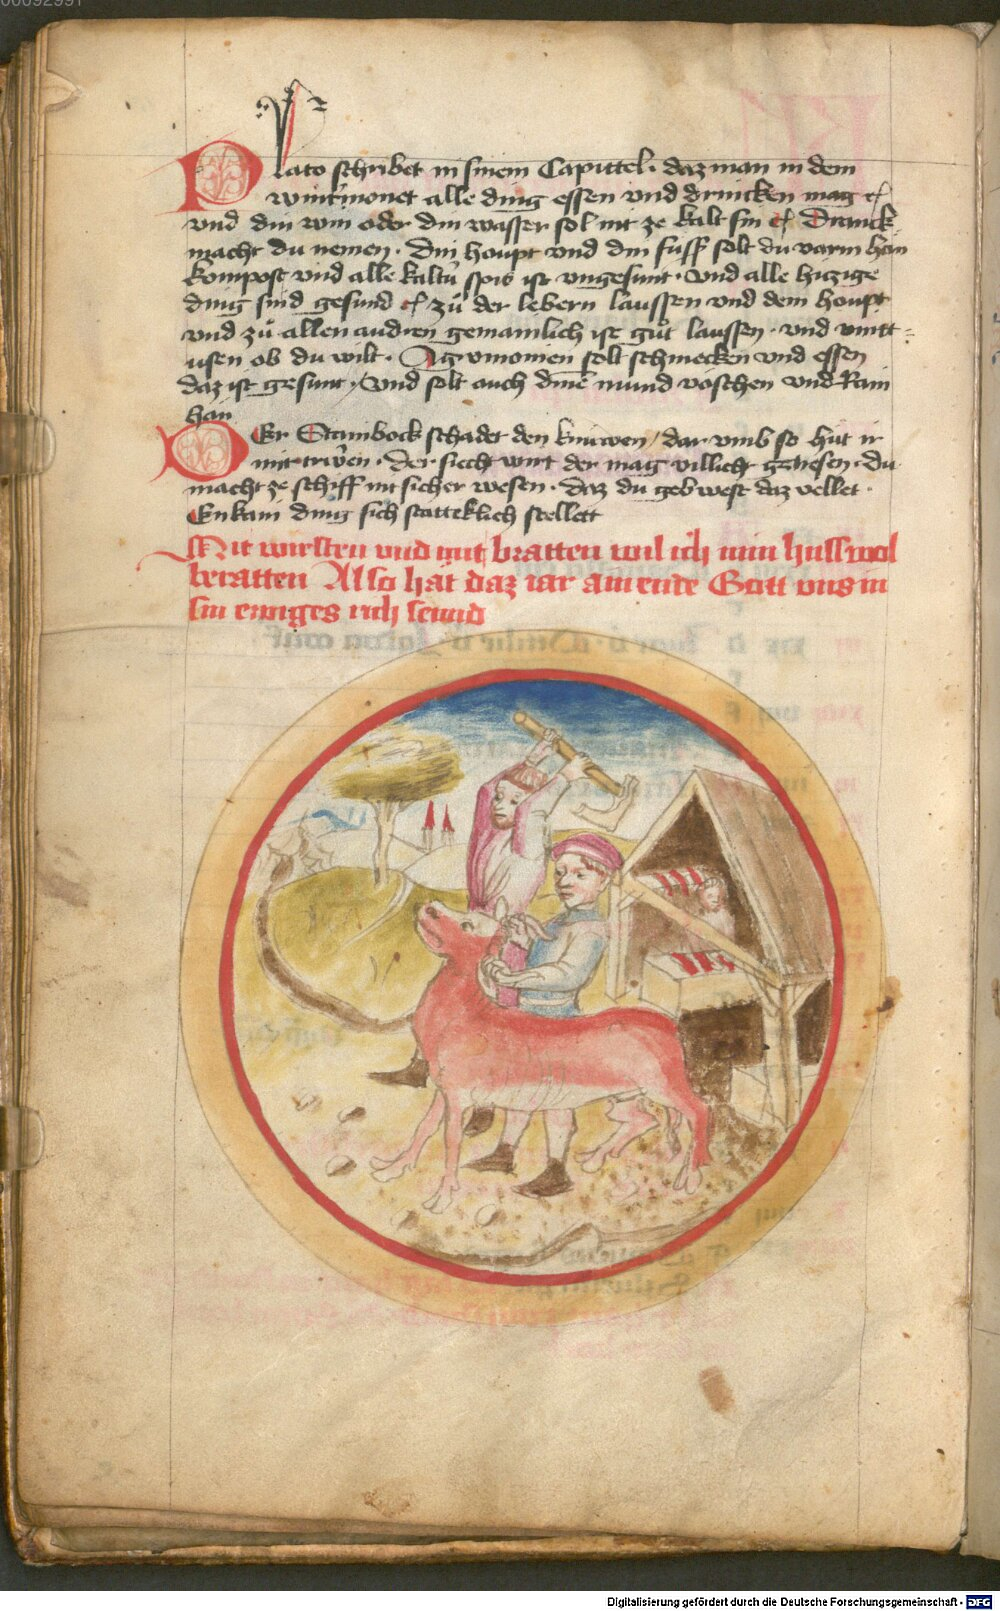 00092991
Plato schribet in sinem Capittel · daz man in dem
wintmonet alle ding essen vnd drincken mag
vnd din win oder din wasser sol nit ze kalt sin Dranck
macht du nemen · Din houpt vnd din fuss solt du varm han
kompost vnd alle kaltu spis ist vngesunt · vnd alle hizige
ding sind gesund zů der lebern laussen vnd dem houpt
vnd zů allen andren gemainlich ist gůt laussen · vnd
usen ob du wilt · solt schmecken vnd essen
daz ist gesunt / vnd solt ouch dinē mund väschen vnd Rain
han
DEr Stainbock schadet den knúwen / dar vmb so hüt ir
mit trüwen · der siech wirt der mag villicht genesen · du
macht ze schiff nit sicher wesen · daz du gebwest daz vellet ·
Enkain ding sich stätteklich stellett
Mit wirsten vnd mit bratten wil ich min huss wol
beratten Also hät daz iar ain ende Gott vns in
sin ewiges rich sennd
Digitalisierung gefördert durch die Deutsche Forschungsgemeinschaft - DFG